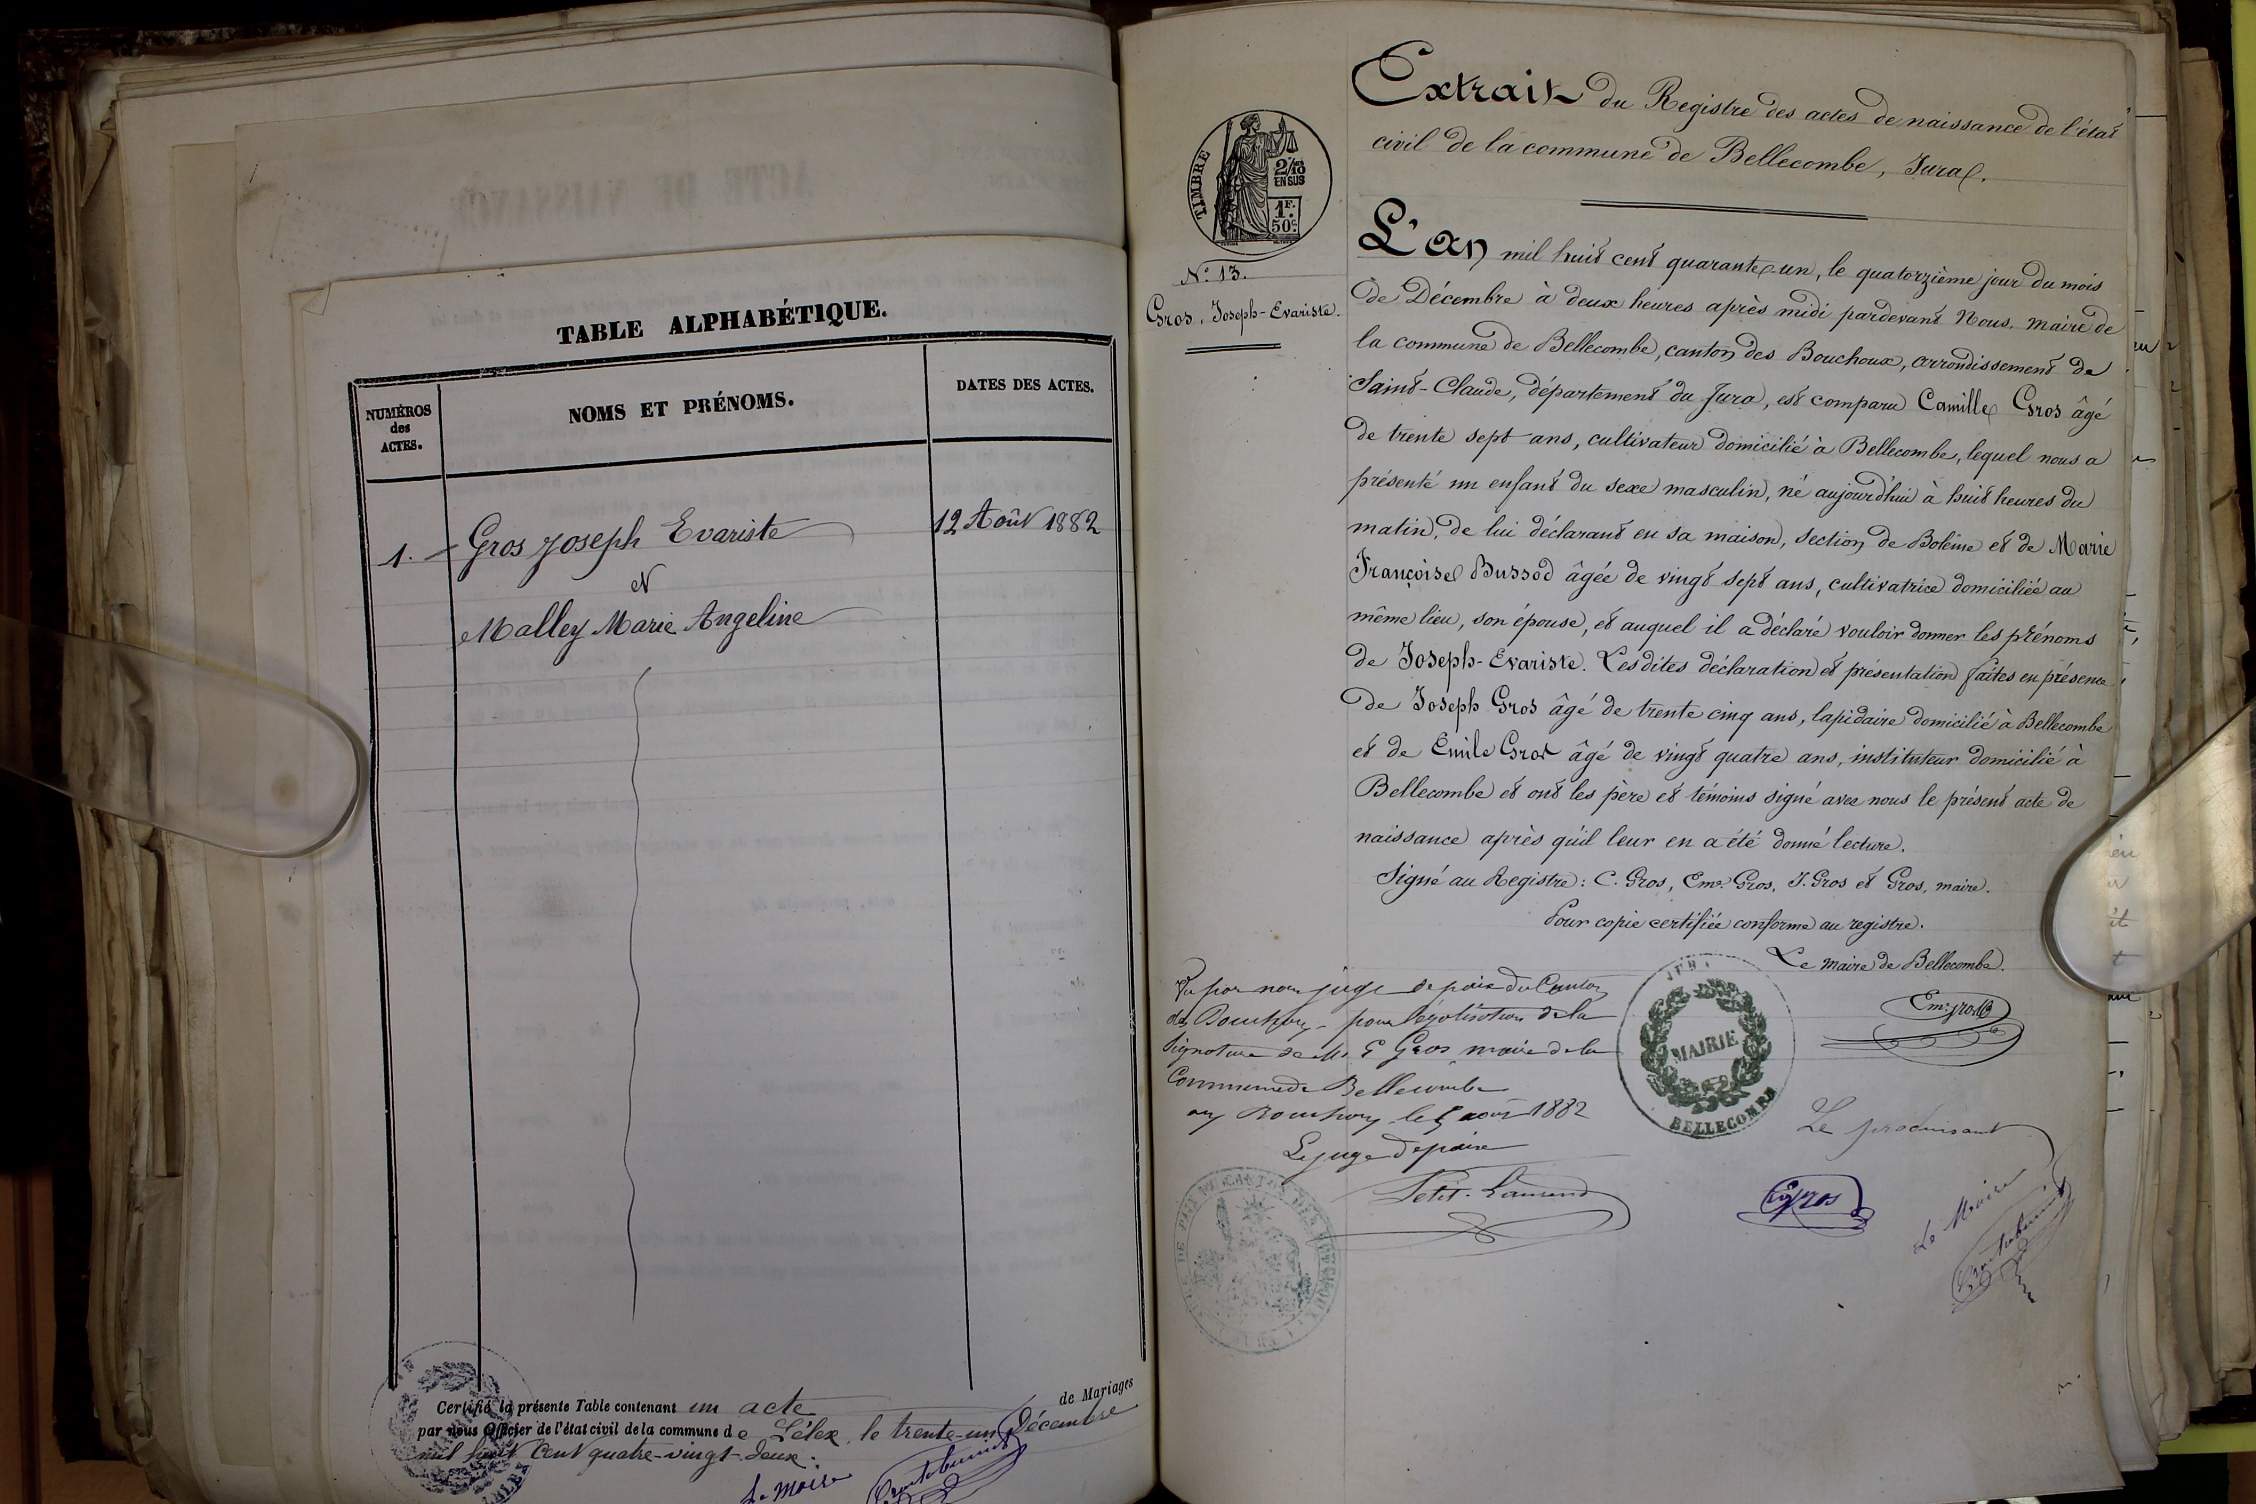 TABLE ALPHABÉTIQUE.
NUMÉROS
des
ACTES.
NOMS ET PRÉNOMS.
DATES DES ACTES.
1. Gros Joseph Evariste 12 Août 1882
et
Malley Marie Angeline
Certifié la présente Table contenant un acte de Mariages
par nous Officier de l'état civil de la commune de Lélex, le trente-un Décembre
mil huit cent quatre-vingt-deux.
Le Maire
Extrait du Registre des actes de naissance de l'état
civil de la commune de Bellecombe, Jura.
TIMBRE
2/10
EN SUS
1F.
50c.
N° 13.
Gros, Joseph-Evariste.
L'an mil huit cent quarante-un, le quatorzième jour du mois
de Décembre à deux heures après midi pardevant Nous, maire de
la commune de Bellecombe, canton des Bouchoux, arrondissement de
Saint-Claude, département du Jura, est comparu Camille Gros âgé
de trente sept ans, cultivateur domicilié à Bellecombe, lequel nous a
présenté un enfant du sexe masculin, né aujourd'hui à huit heures du
matin, de lui déclarant en sa maison, section de Boléme et de Marie
Françoise Bussod âgée de vingt sept ans, cultivatrice domiciliée au
même lieu, son épouse, et auquel il a déclaré vouloir donner les prénoms
de Joseph-Evariste. Lesdites déclaration et présentation faites en présence
de Joseph Gros âgé de trente cinq ans, lapidaire domicilié à Bellecombe
et de Emile Gros âgé de vingt quatre ans, instituteur domicilié à
Bellecombe et ont les père et témoins signé avec nous le présent acte de
naissance après qu'il leur en a été donné lecture.
Signé au Registre : C. Gros, Em. Gros, J. Gros et Gros, maire.
Pour copie certifiée conforme au registre.
Le maire de Bellecombe.
Em. Gros
Vu par nous juge de paix du Canton
des Bouchoux pour légalisation de la
signature de Mr E Gros maire de la
Commune de Bellecombe
aux Bouchoux le 5 août 1882
Le juge de paix
Petit-Laurent
MAIRIE
BELLECOMBE
Le produisant
Gros
Le Maire